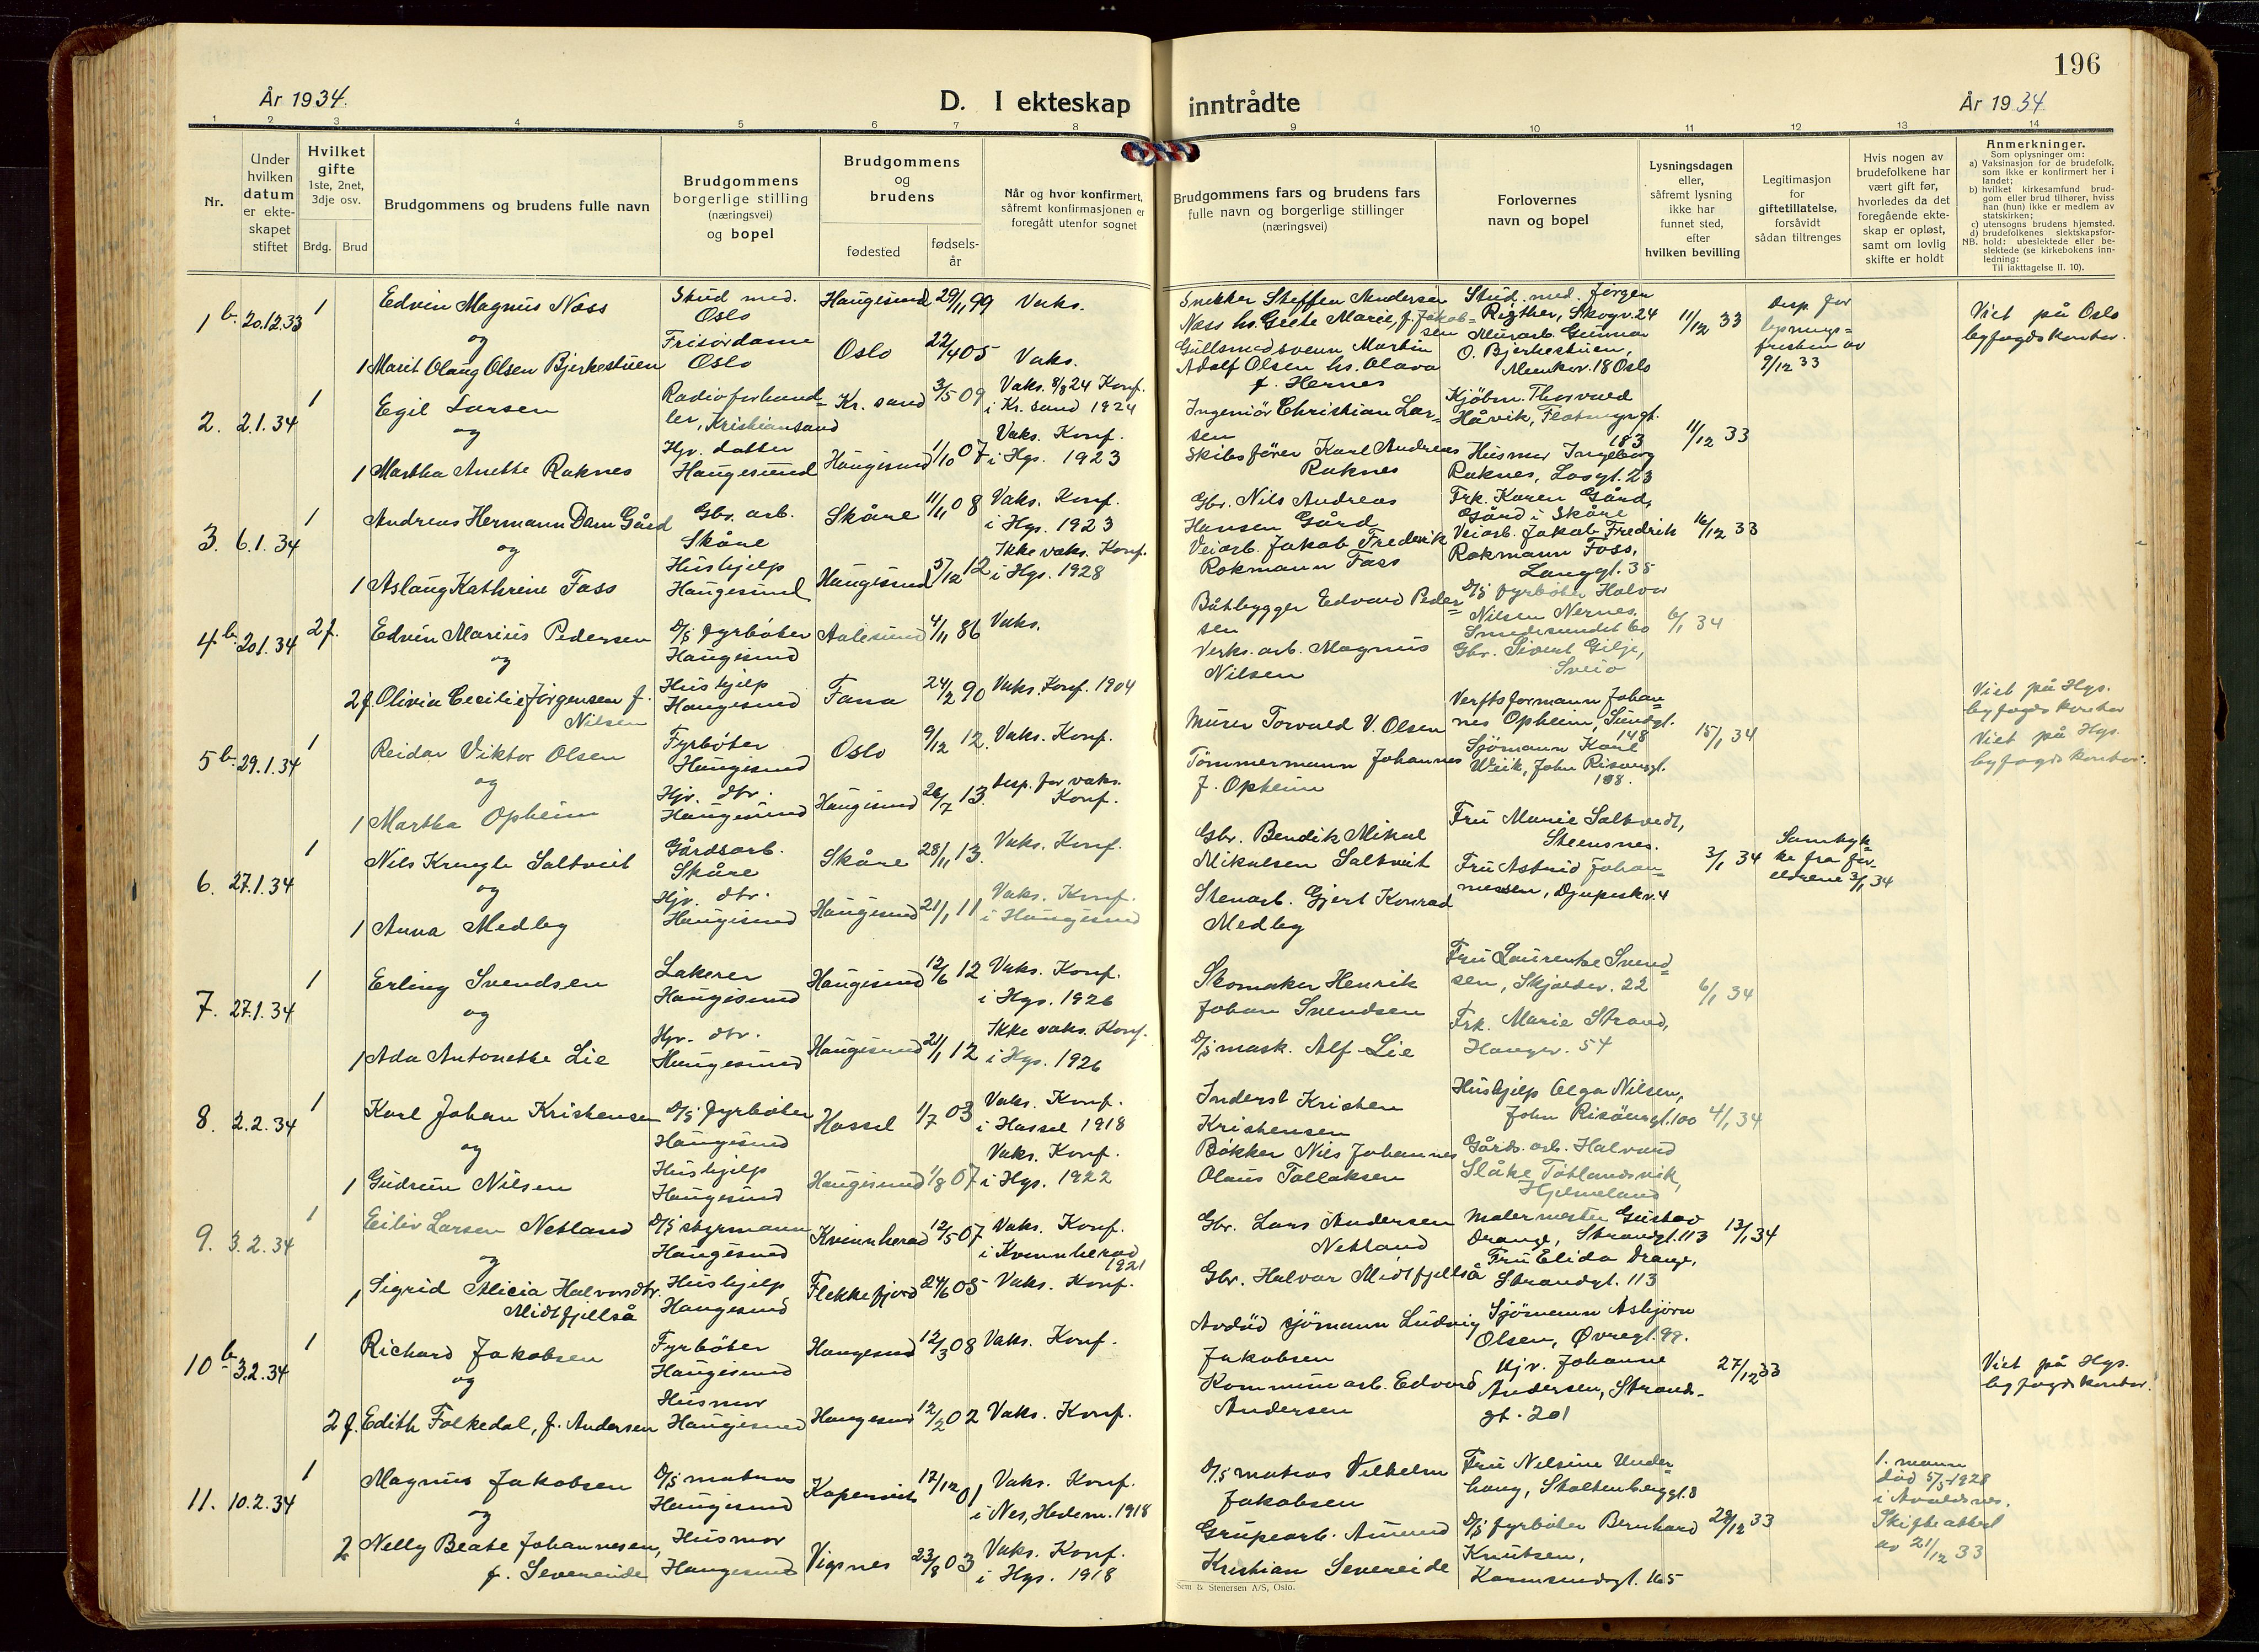 196
År 1934.
D. I ekteskap inntrådte
År 1934
1 2 3 4 5 6 7 8 9 10 11 12 13 14
Nr.
Under hvilken datum er ekteskapet stiftet
Hvilket gifte
1ste, 2net, 3dje osv.
Brdg. Brud
Brudgommens og brudens fulle navn
Brudgommens borgerlige stilling (næringsvei) og bopel
Brudgommens og brudens
fødested
fødselsår
Når og hvor konfirmert, såfremt konfirmasjonen er foregått utenfor sognet
Brudgommens fars og brudens fars fulle navn og borgerlige stillinger (næringsvei)
Forlovernes navn og bopel
Lysningsdagen eller, såfremt lysning ikke har funnet sted, efter hvilken bevilling
Legitimasjon for giftetillatelse, forsåvidt sådan tiltrenges
Hvis nogen av brudefolkene har vært gift før, hvorledes da det foregående ekteskap er opløst, samt om lovlig skifte er holdt
Anmerkninger.
Som oplysninger om:
a) Vaksinasjon for de brudefolk, som ikke er konfirmert her i landet;
b) hvilket kirkesamfund brudgom eller brud tilhører, hviss han (hun) ikke er medlem av statskirken;
c) utensogns brudens hjemsted.
d) brudefolkenes slektskapsforhold: ubeslektede eller beslektede (se kirkebokens innledning:
NB.
Til iakttagelse II. 10).
1 b. 20.12.33 1 Edvin Magnus Næss Stud med. Oslo Haugesund 29/11 99 Vaks.
og
1 Marit Olaug Olsen Bjerkestuen Frisørdame Oslo Oslo 22/4 05 Vaks.
Snekker Steffen Andersen Næss hs. Grete Marie, f. Jakobsen
Gullsmedsvenn Martin Adolf Olsen hs. Olava f. Hernes
Stud. med. Jørgen Rigther, Skogv. 24
Murarb. Gunnar O. Bjerkestuen, 18 Oslo
11/12 33
Disp. for lysningsfristen av 9/12 33
Viet på Oslo byfogdskontor.
2. 2.1.34 1 Egil Larsen Radioforhandler, Kristiansand Kr. sand 3/5 09 Vaks. 8/3 24 Konf. i Kr. sand 1924
og
1 Martha Anette Raknes Hjv. datter Haugesund Haugesund 1/10 07 Vaks. Konf. i Hgs. 1923
Ingeniør Christian Larsen
Skibsfører Karl Andreas Raknes
Kjøbm. Thorvald Håvik, Flotmyrgt. 183
Husmor Ingeborg Raknes, Losgt. 23
11/12 33
3. 6.1.34 1 Andreas Hermann Dam Gård Gbr. arb. Skåre Skåre 11/11 08 Vaks. Konf. i Hgs. 1923
og
1 Aslaug Kathrine Fass Hushjelp Haugesund Haugesund 5/12 12 Ikke vaks. Konf. i Hgs. 1928
Gbr. Nils Andreas Hansen Gård
Veiarb. Jakob Fredrik Rokmann Fass
Frk. Karen Gård, Gård i Skåre
Veiarb. Jakob Fredrik Rokmann Foss, Langgt. 35
16/12 33
4 b. 20.1.34 2 f. Edvin Marius Pedersen D/S fyrbøter Haugesund Aalesund 4/11 86 Vaks.
og
2 f. Olivia Cecilie Jørgensen f. Nilsen Hushjelp Haugesund Fana 24/2 90 Vaks. Konf. 1904
Båtbygger Edvard Pedersen
Verks. arb. Magnus Nilsen
D/S fyrbøter Halvor Nilsen Nernes, Smedasundet 60
Gbr. Sivert Gilje, Sveio
6/1 34
Viet på Hgs. byfogdskontor
5 b. 29.1.34 1 Reidar Viktor Olsen Fyrbøter Haugesund Oslo 9/12 12. Vaks. Konf.
og
1 Martha Opheim Hjv. dtr. Haugesund Haugesund 26/7 13. Disp. for vaks. Konf.
Murer Torvald V. Olsen
Tømmermann Johannes J. Opheim
Verftsformann Johannes Opheim, Sundgt. 148
Sjømann Karl Wiik, John Risøensgt. 188.
15/1 34
Viet på Hgs. byfogdskontor.
6. 27.1.34 1 Nils Kringle Saltveit Gårdsarb. Skåre Skåre 28/11 13. Vaks. Konf.
og
1 Anna Medby Hjv. dtr. Haugesund Haugesund 21/1 11 Vaks. Konf. i Haugesund
Gbr. Bendik Mikal Mikalsen Saltveit
Stenarb. Gjert Konrad Medby
Fru Marie Saltvedt, Steensnes.
Fru Astrid Johannessen, Djupeskv. 4
3/1 34
Samtykke fra foreldrene 3/1 34
7. 27.1.34 1 Erling Svendsen Lakerer Haugesund Haugesund 12/6 12 Vaks. Konf. i Hgs. 1926
og
1 Ada Antonette Lie Hjv. dtr. Haugesund Haugesund 21/1 12 Ikke vaks. Konf. i Hgs. 1926
Skomaker Henrik Johan Svendsen
D/S mask. Alf Lie
Fru Laurentse Svendsen, Skjoldv. 22
Frk. Marie Strand, Haugev. 54
6/1 34
8. 2.2.34 1 Karl Johan Kristensen D/S fyrbøter Haugesund Hassel 1/7 03 Vaks. Konf. i Hassel 1918
og
1 Gudrun Nilsen Hushjelp Haugesund Haugesund 1/8 07 Vaks. Konf. i Hgs. 1922
Inderst Kristen Kristensen
Bøkker Nils Johannes Olaus Tollaksen
Hushjelp Olga Nilsen, John Risøensgt. 100
Gårds. arb. Halvard Slåke Tøtlandsvik, Hjelmeland
4/1 34
9. 3.2.34 1 Eiliv Larsen Netland D/S styrmann Haugesund Kvinnherad 12/5 07 Vaks. Konf. i Kvinnherad 1921
og
1 Sigrid Alicia Halvorsdtr. Midtfjellså Hushjelp Haugesund Flekkefjord 24/6 05 Vaks. Konf.
Gbr. Lars Andersen Netland
Gbr. Halvor Midtfjellså
Malermester Gustav Drange, Strandgt. 113
Fru Elida Drange, Strandgt. 113
13/1 34
10 b. 3.2.34 1 Richard Jakobsen Fyrbøter Haugesund Haugesund 12/3 08 Vaks. Konf.
og
2 f. Edith Folkedal, f. Andersen Husmor Haugesund Haugesund 12/2 02 Vaks. Konf.
Avdød sjømann Ludvig Jakobsen
Kommunearb. Edvard Andersen
Sjømann Asbjørn Olsen, Øvregt. 99.
Hjv. Johanne Andersen, Strandgt. 201
27/12 33
Viet på Hgs. byfogdskontor.
11. 10.2.34 1 Magnus Jakobsen D/S matros Haugesund Kopervik 17/12 01 Vaks. Konf. i Nes, Hedem. 1918
og
2 Nelly Beate Johannesen, f. Severeide Husmor Haugesund Vigsnes 23/8 03 Vaks. Konf. i Hgs. 1918
D/S matros Vilhelm Jakobsen
Grubearb. Amund Kristian Severeide
Fru Nelsine Underhaug, Stoltenberggt. 8
D/S fyrbøter Bernhard Knutsen, Karmsundgt. 165
28/12 33
1. mann død 5/5-1928 i Avaldsnes. Skifteattest av 21/12 33
Sem & Stenersen A/S, Oslo.